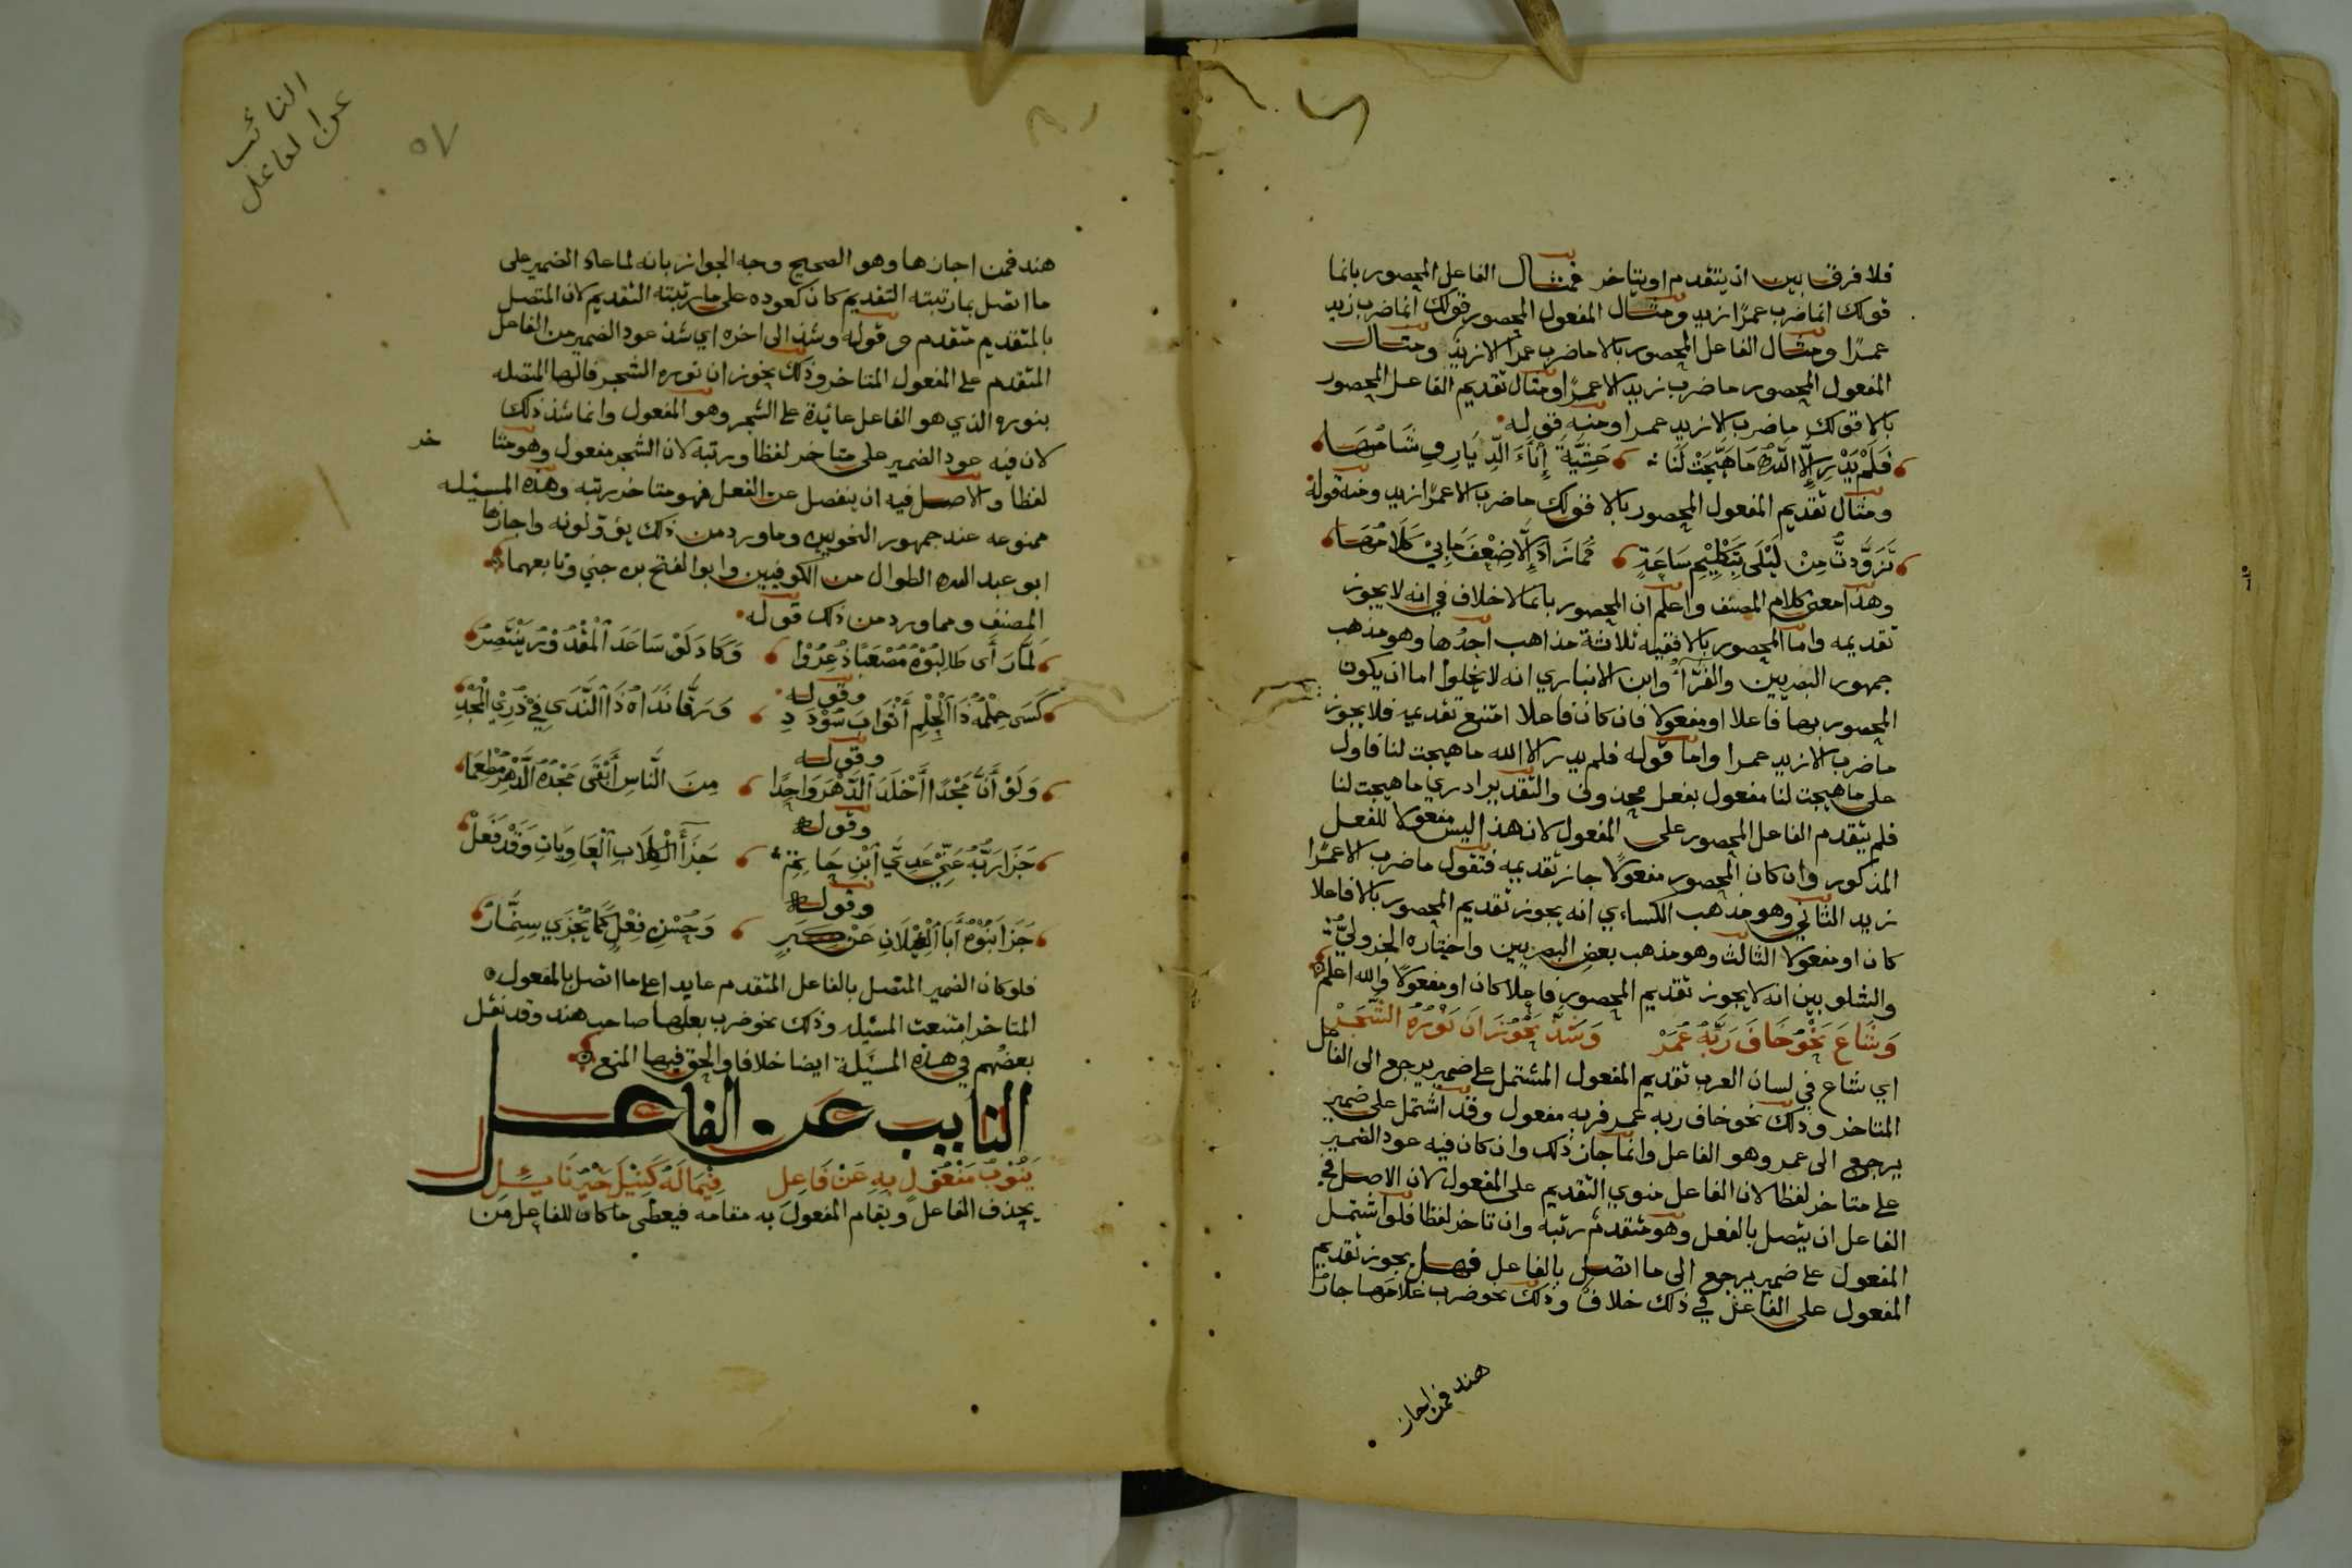 فلا فرق بين ان يتقدم او يتاخر فمثال الفاعل المحصور بانما
قولك انما ضرب عمرًا زيد ومثال المفعول المحصور قولك انما ضرب زيد
عمرًا ومثال الفاعل المحصور بالا ماضرب عمرًا الا زيد ومثال
المفعول المحصور ماضرب زيد الا عمرًا ومثال تقديم الفاعل المحصور
بالا قولك ماضرب الا زيد عمرا ومنه قوله
فَلَمْ يَدْرِ إِلَّا اللَّهُ مَا هَيَّجَتْ لَنَا عَشِيَّةَ إِنَاءَ الدِّيَارِ وِشَامُهَا
ومثال تقديم المفعول المحصور بالا قولك ماضرب الا عمرًا زيد ومنه قوله
تَزَوَّدْتُ مِنْ لَيْلَى بِتَكْلِيْمِ سَاعَةٍ فَمَا زَادَ إِلَّا ضِعْفَ مَا بِيْ كَلَامُهَا
وهذا معنى كلام المصنف واعلم ان المحصور بانما لا خلاف في انه لا يجوز
تقديمه واما المحصور بالا ففيه ثلاثة مذاهب احدُها وهو مذهب
جمهور البصريين والفرّاء وابن الانباري انه لا يخلوا اما ان يكون
المحصور بها فاعلا او مفعولا فان كان فاعلا امتنع تقديمه فلا يجوز
ماضرب الا زيد عمرا واما قوله فلم يدر الا الله ما هيجت لنا فاول
على ما هيجت لنا مفعول بفعل محذوف والتقدير ادري ما هيجت لنا
فلم يتقدم الفاعل المحصور على المفعول لان هذا ليس مفعولا للفعل
المذكور وان كان المحصور مفعولًا جاز تقديمه فتقول ماضرب الا عمرًا
زيد الثاني وهو مذهب الكساءي انه يجوز تقديم المحصور بالا فاعلا
كان او مفعولا الثالث وهو مذهب بعض البصريين واختاره الجزوليّ
والشلوبين انه لا يجوز تقديم المحصور فاعلا كان او مفعولًا والله اعلم
وَشَاعَ نَحْوُ خَافَ رَبَّهُ عُمَرْ وَشَذَّ نَحْوُ زَانَ نَوْرُهُ الشَّجَرْ
اي شاع في لسان العرب تقديم المفعول المشتمل على ضمير يرجع الى الفاعل
المتاخر وذلك نحو خاف ربه عمر فربه مفعول وقد اشتمل على ضمير
يرجع الى عمر وهو الفاعل وانما جاز ذلك وان كان فيه عود الضمير
على متاخر لفظا لان الفاعل منوي التقديم على المفعول لان الاصل في
الفاعل ان يتصل بالفعل وهو متقدم رتبه وان تاخر لفظا فلو اشتمل
المفعول على ضمير يرجع الى ما اتصل بالفاعل فهل يجوز تقديم
المفعول على الفاعل في ذلك خلاف وذلك نحو ضرب غلامها جار
هند فمن اجاز
النائب
عن الفاعل
٥٧
هند فمن اجازها وهو الصحيح وجه الجواز بانه لما عاد الضمير على
ما اتصل بما رتبته التقديم كان كعوده على ما رتبته التقديم لان المتصل
بالمتقدم متقدم وقوله وشذ الى اخره اي شذ عود الضمير من الفاعل
المتقدم على المفعول المتاخر وذلك نحو زان نوره الشجر فالها المتصله
بنوره الذي هو الفاعل عائدة على الشجر وهو المفعول وانما شذ ذلك
لان فيه عود الضمير على متاخر لفظا ورتبه لان الشجر مفعول وهو متا خر
لفظا والاصل فيه ان ينفصل عن الفعل فهو متاخر رتبه وهذه المسئله
ممنوعه عند جمهور النحويين وما ورد من ذلك يؤولونه واجازها
ابو عبد الله الطوال من الكوفيين وابو الفتح بن جني وتابعهما
المصنف ومما ورد من ذلك قوله
لَمَّا رَأَى طَالِبُوْهُ مُصْعَبًا ذُعِرُوْا وَكَادَ لَوْ سَاعَدَ الْمَقْدُوْرُ يَنْتَصِرُ
وقوله
كَسَى حِلْمُهُ ذَا الْحِلْمِ أَثْوَابَ سُوْدَدٍ وَرَقَّا نَدَاهُ ذَا النَّدَى فِيْ ذُرِي الْمَجْدِ
وقوله
وَلَوْ أَنَّ مَجْدًا أَخْلَدَ الدَّهْرَ وَاحِدًا مِنَ النَّاسِ أَبْقَى مَجْدُهُ الدَّهْرَ مُطْعِمَا
وقوله
جَزَا رَبُّهُ عَنِّيْ عَدِيَّ ابْنَ حَاتِمٍ جَزَاءَ الْكِلَابِ الْعَاوِيَاتِ وَقَدْ فَعَلْ
وقوله
جَزَا بَنُوْهُ أَبَا الْغِيْلَانِ عَنْ كِبَرٍ وَحُسْنِ فِعْلٍ كَمَا يُجْزَي سِنِمَّارُ
فلو كان الضمير المتصل بالفاعل المتقدم عايدا على ما اتصل بالمفعول
المتاخر امتنعت المسئله وذلك نحو ضرب بعلها صاحب هند وقد نقل
بعضُهم في هذه المسئلة ايضا خلافا والحق فيها المنع
النايب عن الفاعل
يَنُوْبُ مَفْعُوْلٌ بِهِ عَنْ فَاعِلِ فِيْمَا لَهُ كَنِيْلَ خَيْرُ نَائِلِ
يحذف الفاعل ويقام المفعول به مقامه فيعطى ما كان للفاعل من